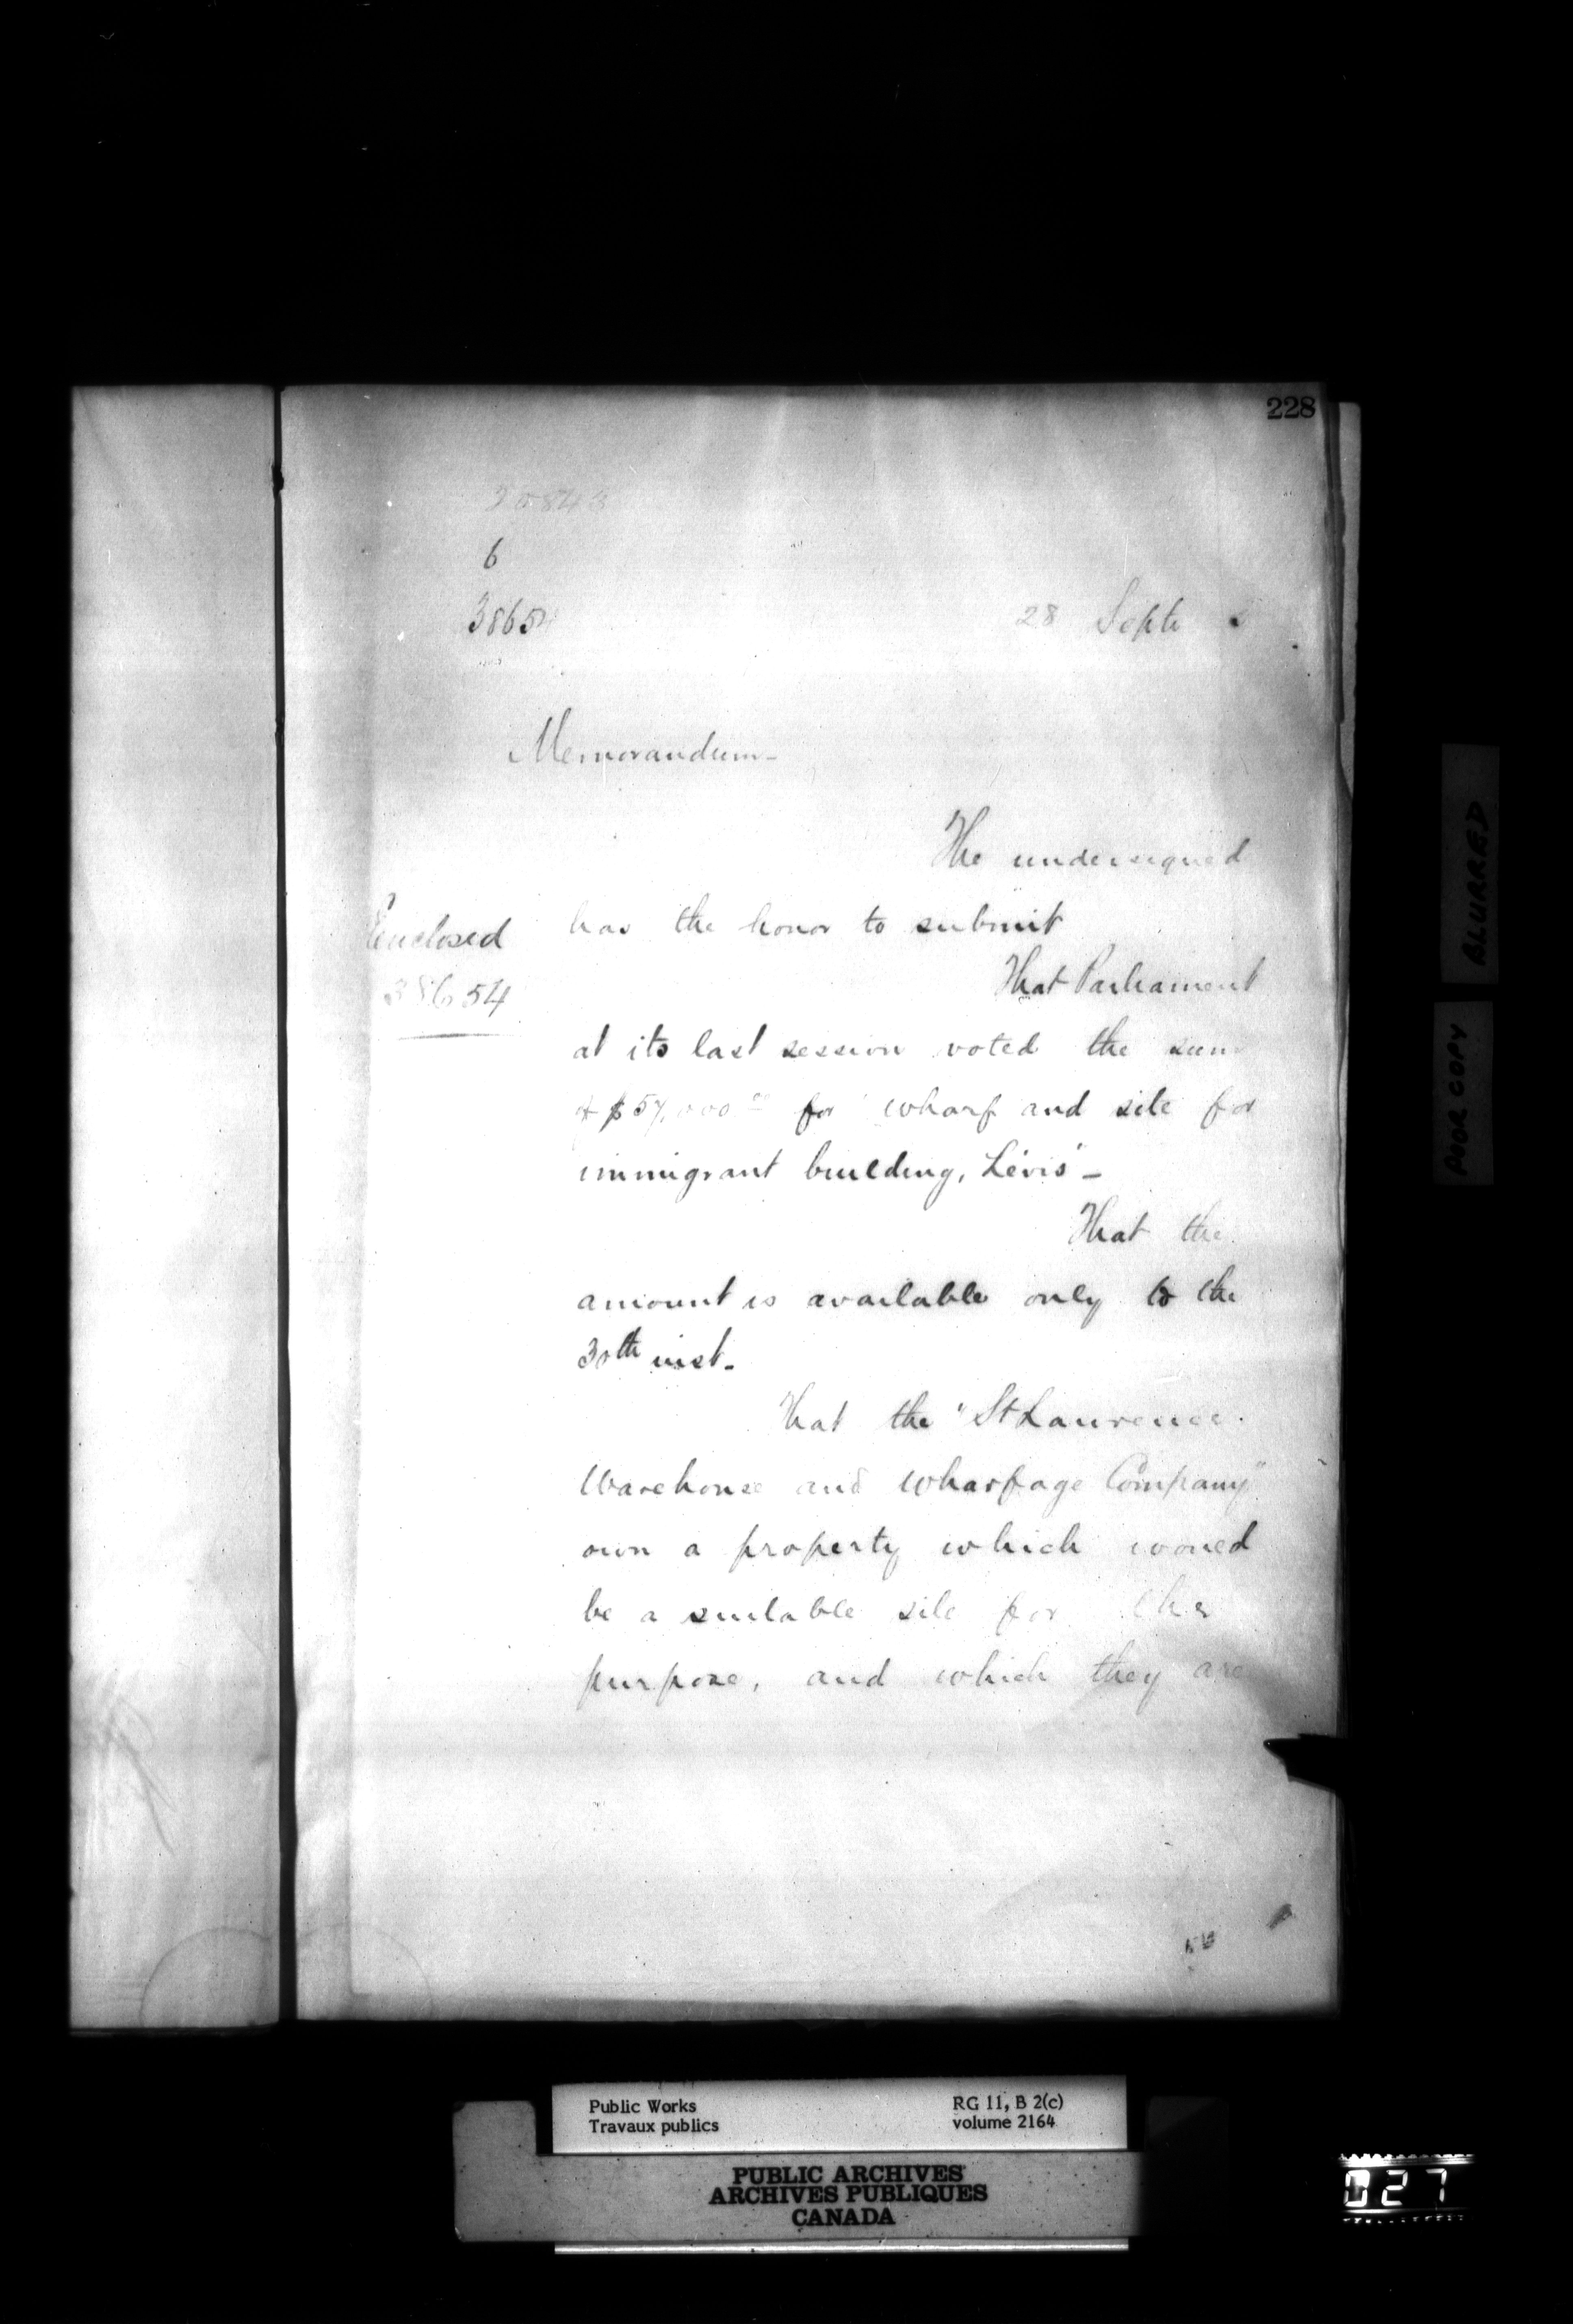 228
20843
6
38654
28 Septr 2
Memorandum-
The undersigned
Enclosed
38654
has the honor to submit
That Parliament
at its last session voted the sum
of $57,000.00 for "wharf and site for
immigrant building, Lévis"-
That the
amount is available only to the
30th inst-
That the "St Lawrence
Warehouse and Wharfage Company"
own a property which would
be a suitable site for the
purpose, and which they are
BLURRED
POOR COPY
Public Works
Travaux publics
RG 11, B 2(c)
volume 2164
PUBLIC ARCHIVES
ARCHIVES PUBLIQUES
CANADA
027